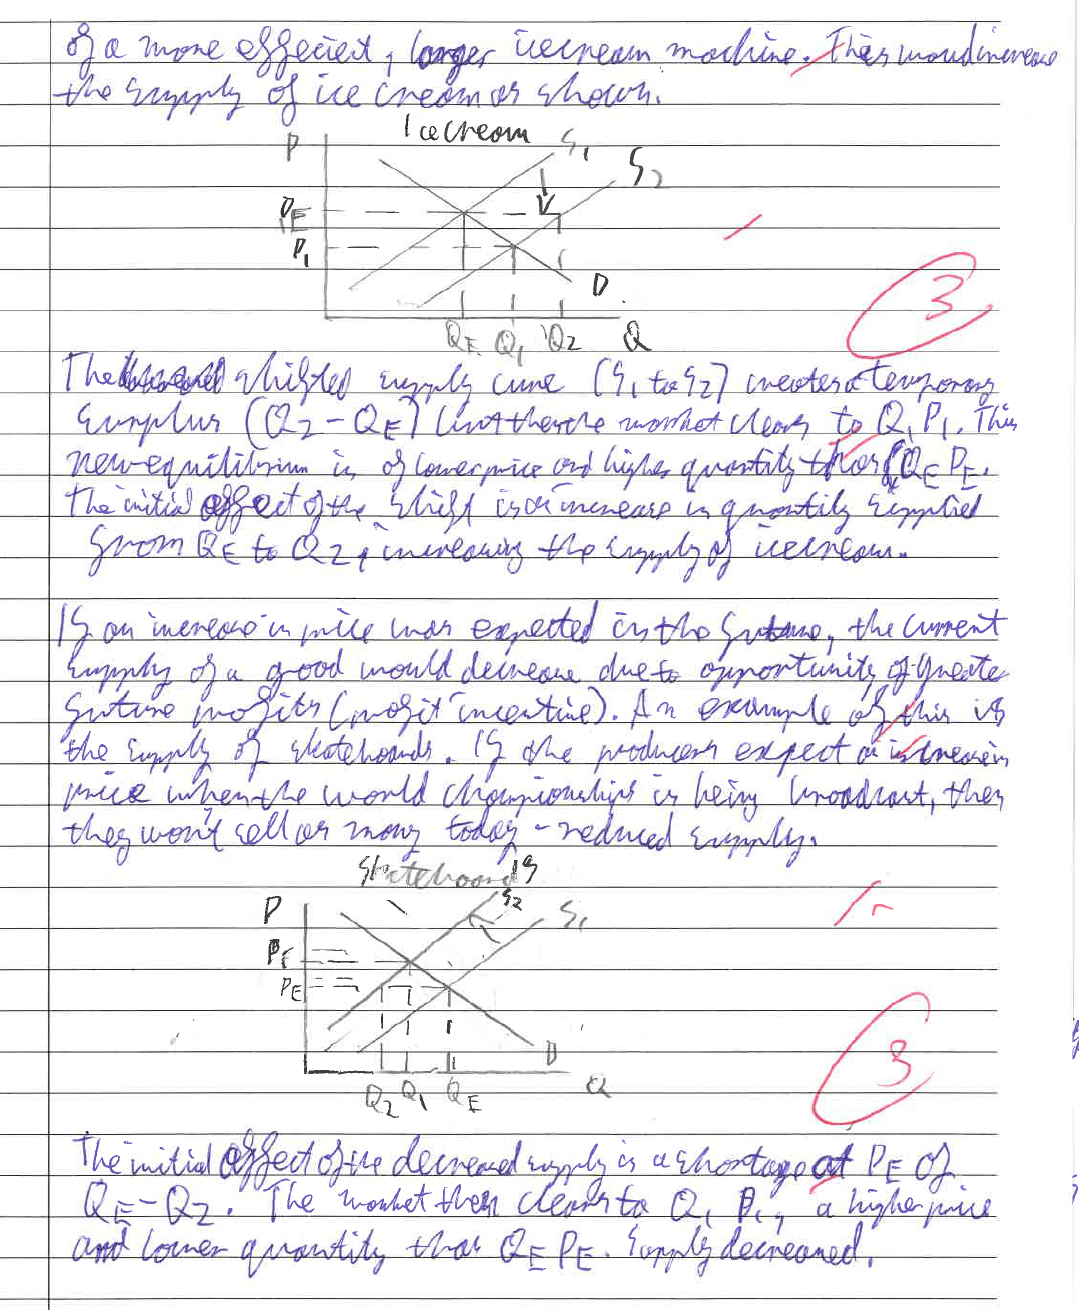 of a more effecient, larger icecream machine. This would increase
the supply of ice cream as shown.
Icecream
P
S1
S2
PE
P1
D
3
QE Q1 Q2 Q
The shifted supply curve (S1 to S2) creates a temporary
surplus (Q2 - QE) but then the market clears to Q1 P1. This
new equilibrium is of lower price and higher quantity than QE PE.
The initial effect of the shift is an increase in quantity supplied
from QE to Q2, increasing the supply of icecream.
If an increase in price was expected in the future, the current
supply of a good would decrease due to opportunity of greater
future profits (profit incentive). An example of this is
the supply of skateboards. If the producers expect an increase in
price when the world championships is being broadcast, then
they won't sell as many today - reduced supply.
Skateboards
P
S2
S1
P1
PE
D
3
Q2 Q1 QE Q
The initial effect of the decreased supply is a shortage at PE of
QE - Q2. The market then clears to Q1 P1, a higher price
and lower quantity than QE PE. Supply decreased.